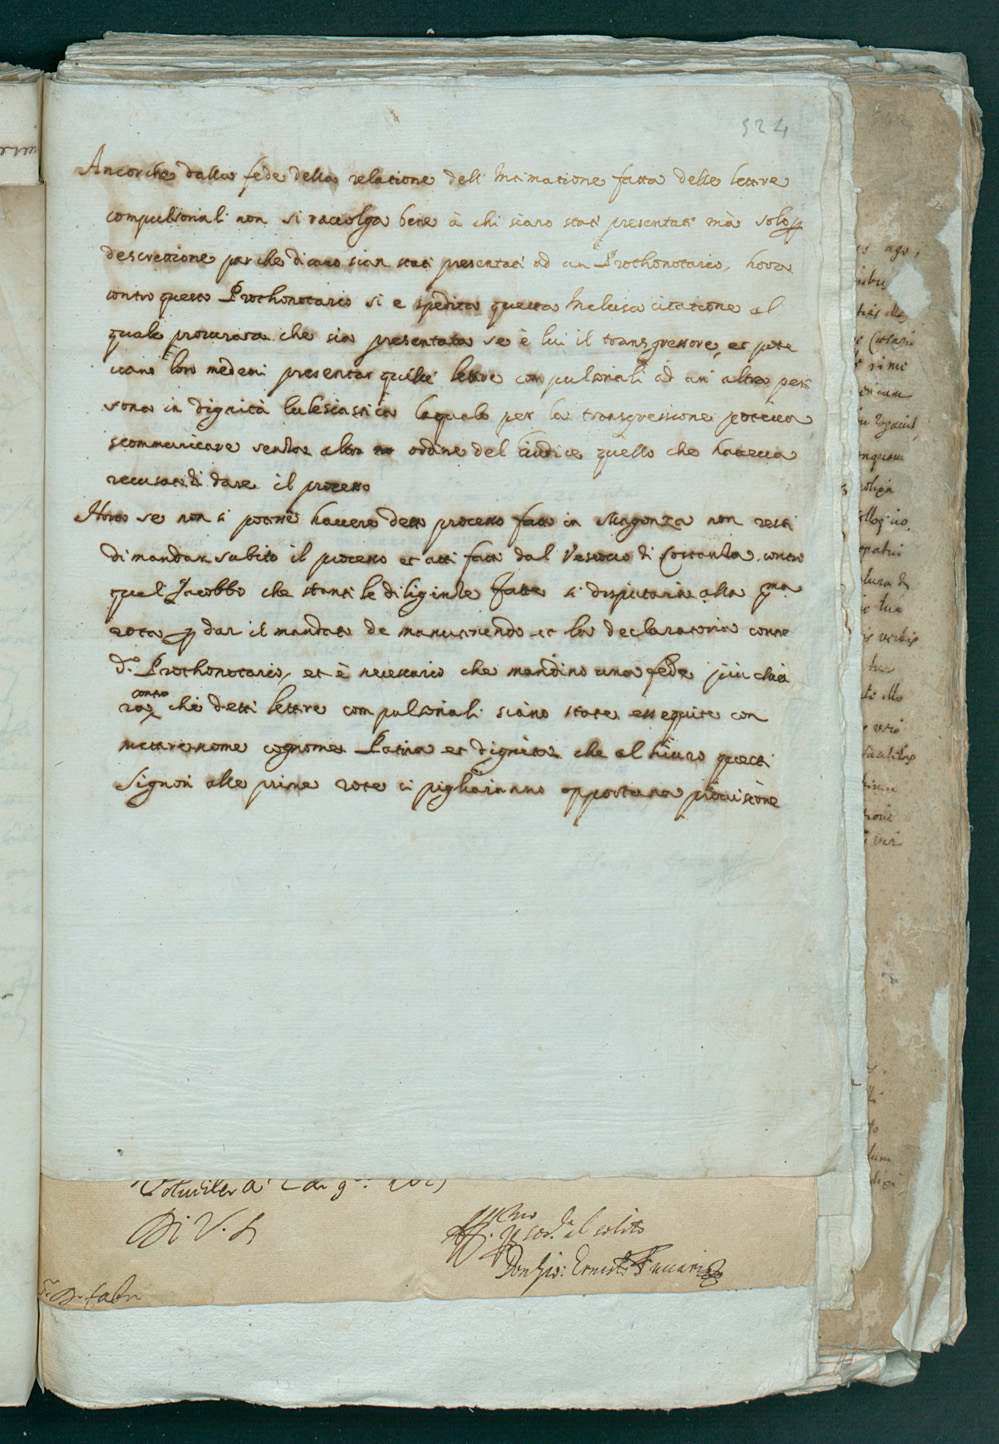 524
Ancorche dalla fede della relatione dell' Intimatione fatta delle lettere
compulsoriali non si raccolga bene à chi siano stati presentati mà solo p
descrettione par che dicano sian stati presentati ad un Prothonotario, hora
contro questo Prothonotario si e spedita questa inclusa citatione al
quale procurara che sia presentata se è lui il transgressore, et pote
uano loro medemi presentar quelle lettere compulsoriali ad un' altra per
sona in dignità Eclesiastica laquale per la transgressione poteua
scommunicare senza altro ordine del Giudice quello che haueua
recusato di dare il processo
Hora se non si potesse hauere detto processo fatto in Magonza non resti
di mandar subito il processo et atti fatti dal Vescouo di Costanza contro
quel Jacobbo che stanti le diligenze fatte si disputaria alla pma
rota p dar il mandato de manutenendo et la declaratoria contro
d.o Prothonotario, et è necessario che mandino una fede più chia
ra contro chi detti lettere compulsoriali siano state essequite con
mettere nome cognome Patria et dignità che al sicuro questi
Signori alle prime rote ci pigliaranno opportuna prouisione
Di V. S.
al solito
Don Gio: Ernesto